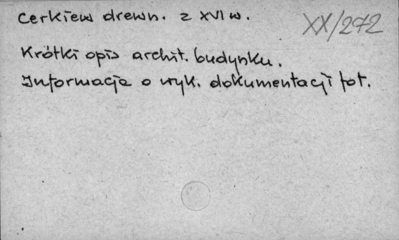 Cerkiew drewn. z XVI w.
XX/272
Krótki opis archit. budynku.
Informacja o wyk. dokumentacji fot.